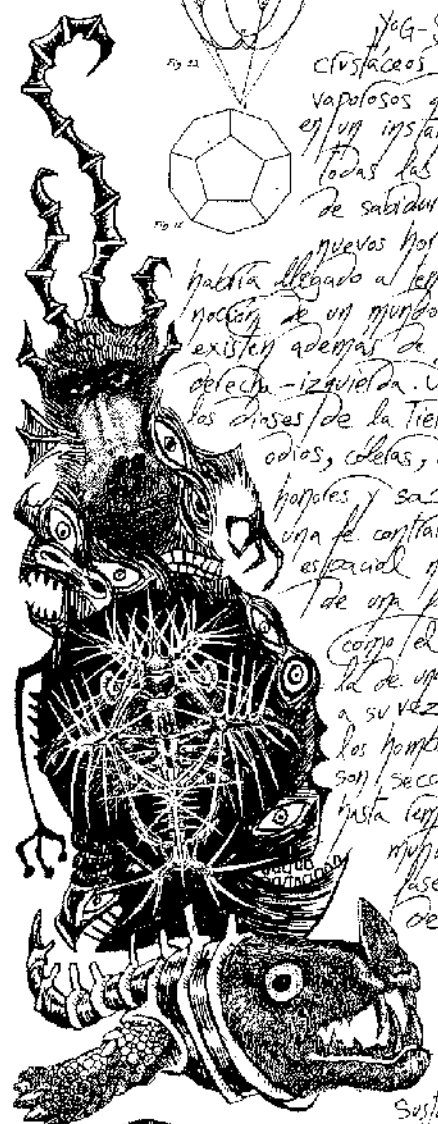 Fig 22
Fig 18
YOG-S
crustáceos
vaporosos
en un insta
todas las
de sabidur
nuevos hor
habría llegado a
noción de un mundo
existen además de
derecha-izquierda.
los dioses de la Tier
odios, cóleras,
honores y
una fe contra
espacial
de una
como el
la de un
a su vez
los hombr
son secc
hasta
mun
fase
de
Sust